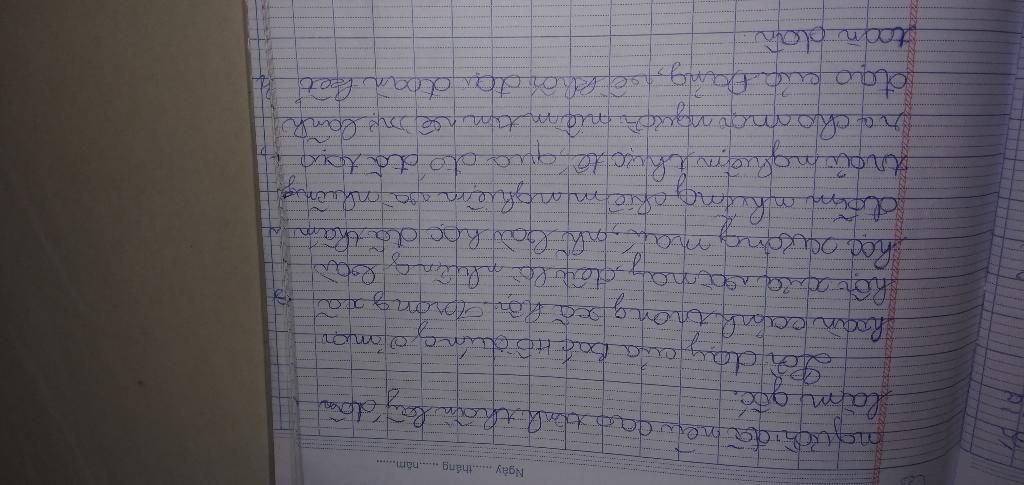 Ngày ...... tháng ...... năm......
người đã nêu cao tinh thần lấy dân
làm gốc.
Lời dạy của Bác Hồ đúng ở mọi
hoàn cảnh trong xã hội. Trong xã
hội xưa và nay, đó là những bài
học xương máu, bài học đã thấm
đẫm những chiêm nghiệm và những
trải nghiệm thực tế, qua đó đã
ra cho mọi người niềm tin về sự lãnh
đạo của Đảng, về khối đại đoàn kết
toàn dân.